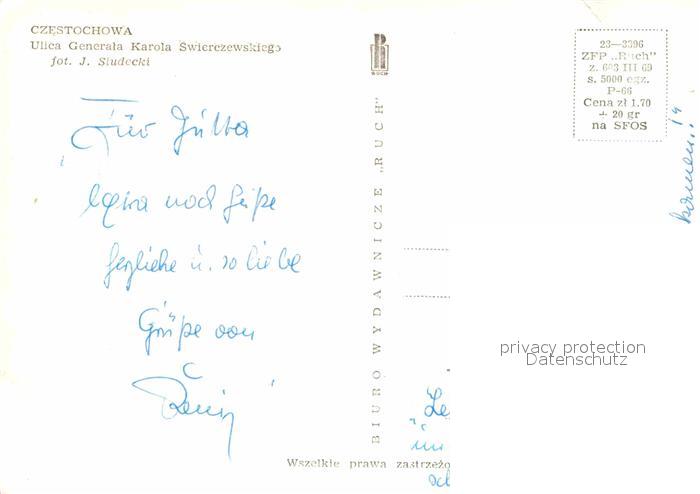 CZĘSTOCHOWA
Ulica Generała Karola Świerczewskiego
fot. J. Siudecki
RUCH
23—3396
ZFP „Ruch”
z. 603 III 69
s. 5000 egz.
P-66
Cena zł 1.70
+ 20 gr
na SFOS
Für Jutta
noch
herzliche u. so liebe
Grüße von
BIURO WYDAWNICZE „RUCH”
privacy protection
Datenschutz
Wszelkie prawa zastrzeżo